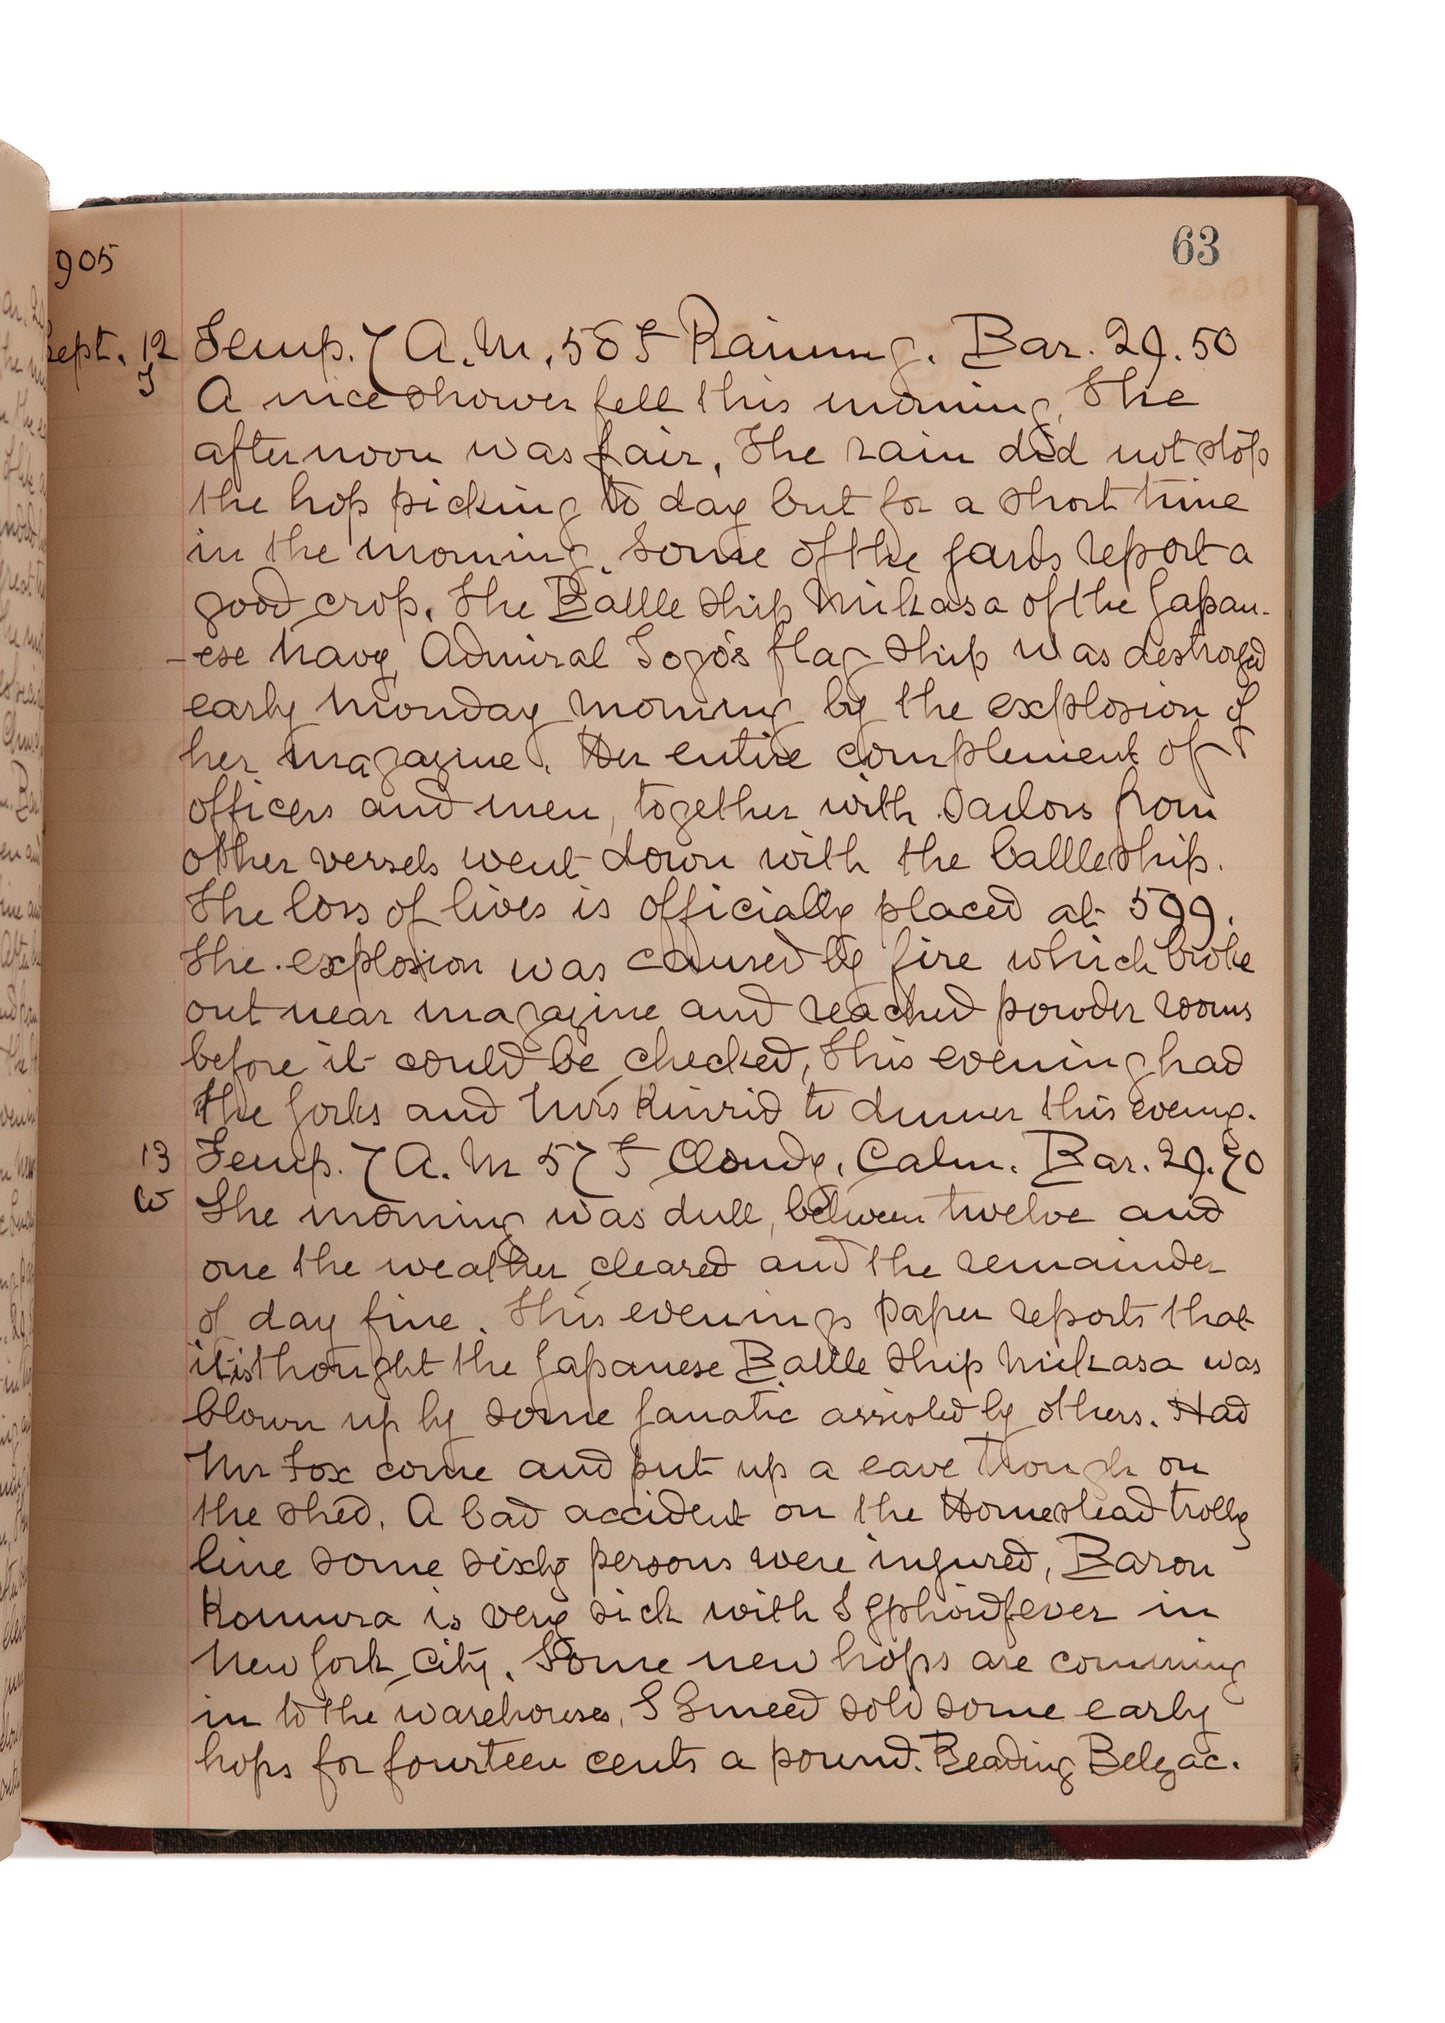 63
905
Sept. 12 Temp. 7 A.M. 58 F Raining. Bar. 29.50
T A nice shower fell this morning, The
afternoon was fair, The rain did not stop
the hop picking to day but for a short time
in the morning. Some of the yards report a
good crop. The Battle ship Mikasa of the Japan-
-ese Navy, Admiral Togo's flag ship was destroyed
early Monday morning by the explosion of
her magazine. Her entire complement of
officers and men, together with sailors from
other vessels went down with the battleship.
The loss of lives is officially placed at 599.
The explosion was caused by fire which broke
out near magazine and reached powder rooms
before it could be checked, This evening had
the Yorks and Mrs Kinrid to dinner this evening.
13 Temp. 7 A.M 57 F Cloudy, Calm. Bar. 29.70
W The morning was dull, between twelve and
one the weather cleared and the remainder
of day fine. This evenings paper reports that
it is thought the Japanese Battle ship Mikasa was
blown up by some fanatic assisted by others. Had
Mr Fox come and put up a eave trough on
the shed. A bad accident on the Homestead trolly
line some sixty persons were injured, Baron
Komura is very sick with Typhoid fever in
New York City. Some new hops are comming
in to the warehouses, I Smeed sold some early
hops for fourteen cents a pound. Reading Belzac.